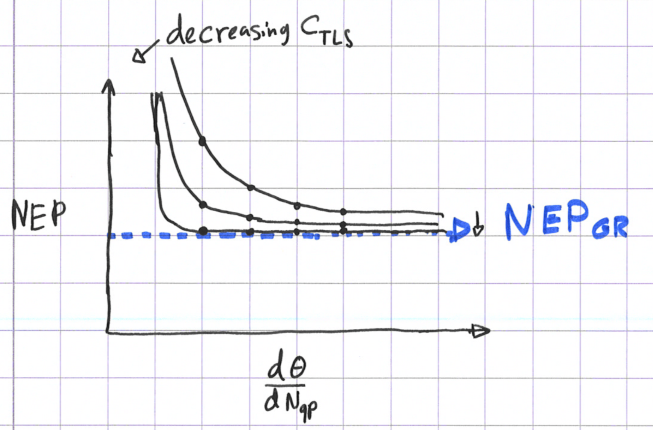 decreasing C_TLS
NEP
NEP_GR
dθ
dN_qp